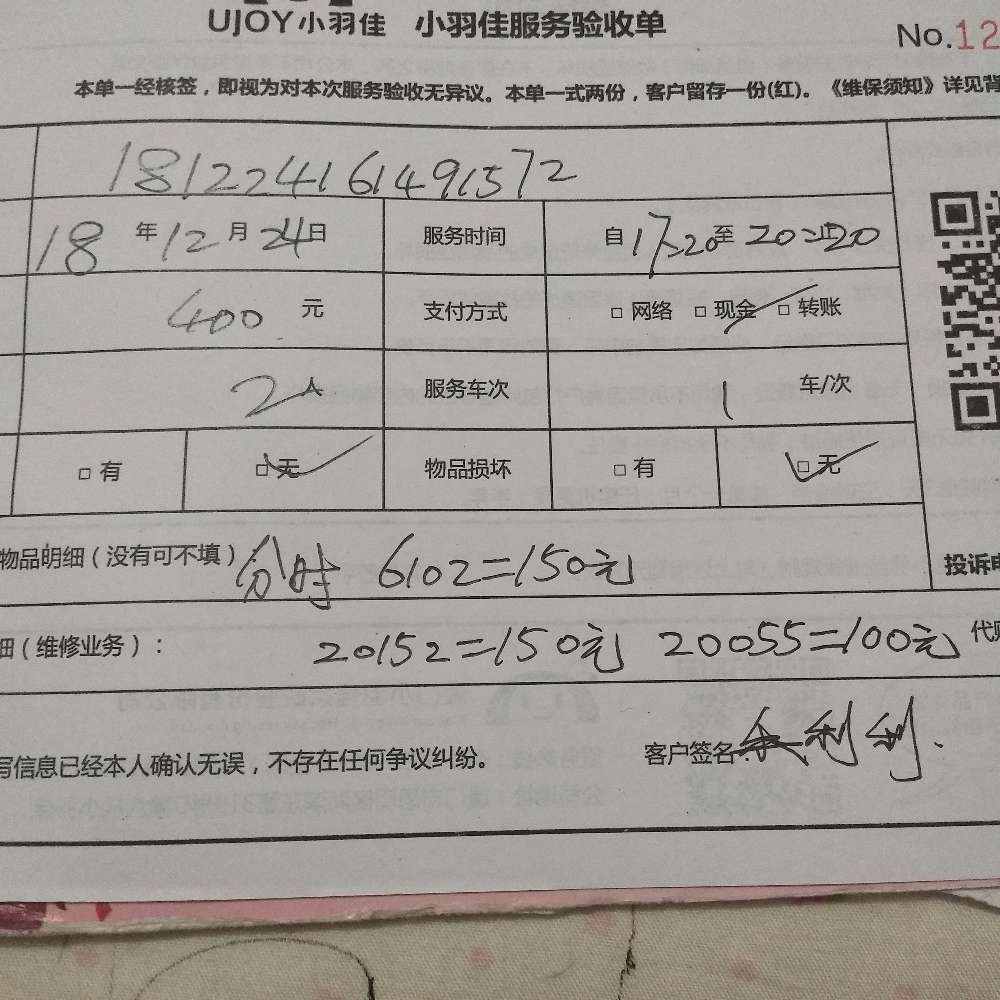 UJOY小羽佳 小羽佳服务验收单
No.12
本单一经核签，即视为对本次服务验收无异议。本单一式两份，客户留存一份(红)。《维保须知》详见背
181224161491572
18 年 12 月 24 日 服务时间 自 17:20 至 20:20
400 元 支付方式 □ 网络 □ 现金 □ 转账
2人 服务车次 1 车/次
□ 有 □ 无 物品损坏 □ 有 □ 无
物品明细（没有可不填） 分时 6102=150元
投诉电
细（维修业务）： 20152=150元 20055=100元 代
写信息已经本人确认无误，不存在任何争议纠纷。 客户签名: 利利